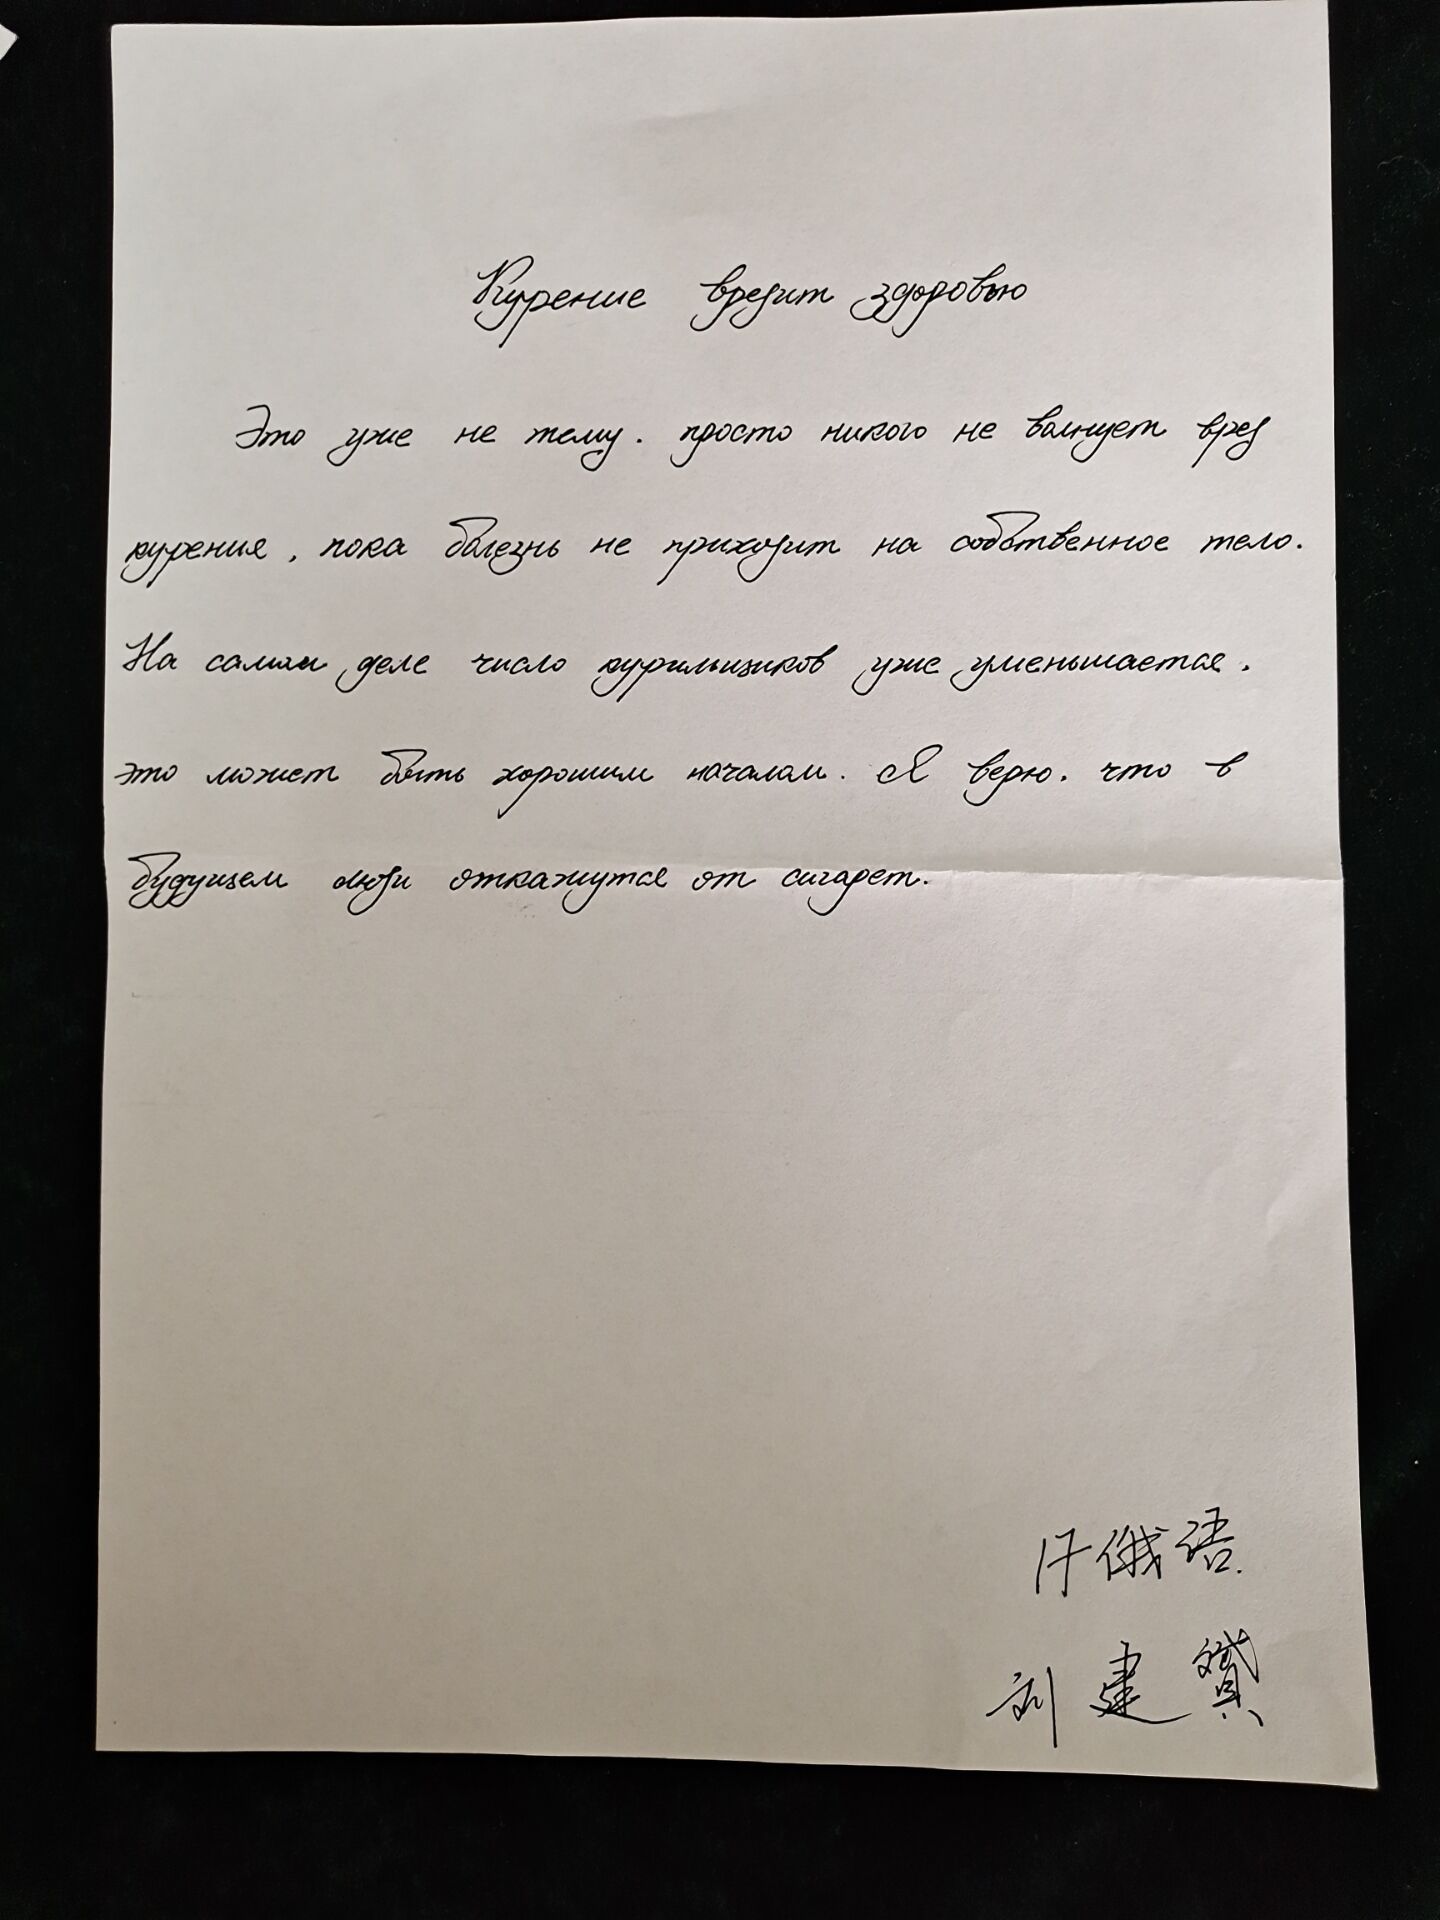 Курение вредит здоровью
Это уже не тему. просто никого не волнует вред
курения, пока болезнь не приходит на собственное тело.
На самом деле число курильщиков уже уменьшается.
это может быть хорошим началом. Я верю. что в
будущем люди откажутся от сигарет.
俄语.
刘建赟